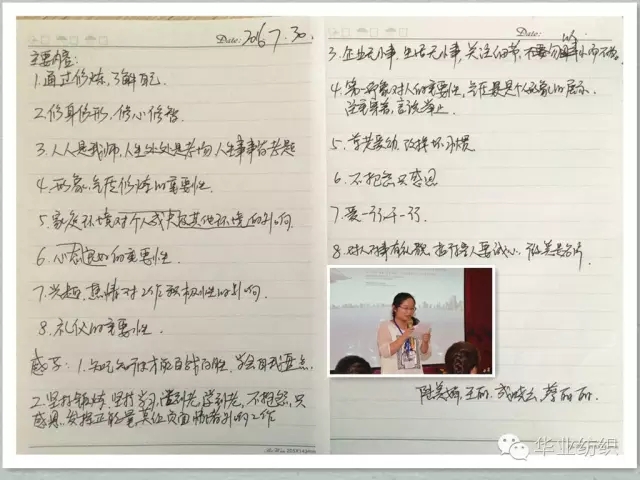 Date: 2016.7.30.
主要内容:
1.通过修炼,了解自己.
2.修身修形,修心修智
3.人人是我师,人生处处是考场,人生事事有考题
4.形象,气质修炼的重要性.
5.家庭环境对个人成长及其他环境的影响.
6.心态良好的重要性.
7.兴趣,热情对工作积极性的影响.
8.礼仪的重要性.
感言:1.知己知彼才能百战百胜,学会自我盘点.
2.坚持锻炼,坚持学习,活到老,学到老,不抱怨,只
感恩,发挥正能量,莫让负面情绪影响工作
Date:
3.企业无小事,生活无小事,关注细节,不要勿因事小而不为.
4.第一印象对人的重要性,气质是个人形象的展示.
注重穿着,言谈举止.
5.尊老爱幼,改掉坏习惯.
6.不抱怨只感恩
7.爱一行干一行.
8.对人对事有礼貌,
王丽,
丽丽.
华业纺织